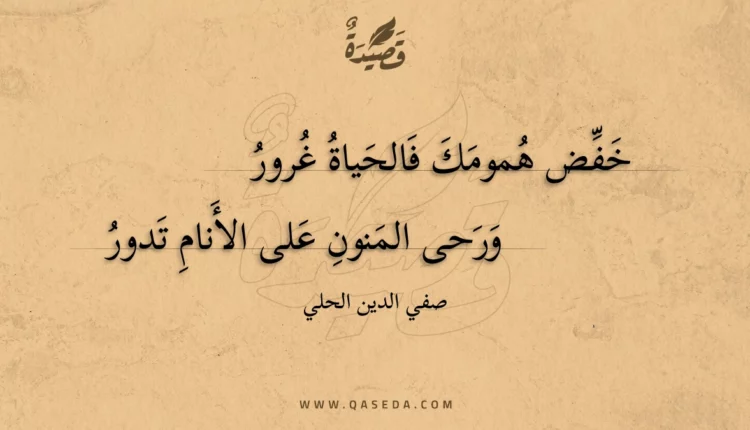 قَصِيْدَةٌ
خَفِّض هُمومَكَ فَالحَياةُ غُرورُ
وَرَحى المَنونِ عَلى الأَنامِ تَدورُ
صفي الدين الحلي
WWW.QASEDA.COM